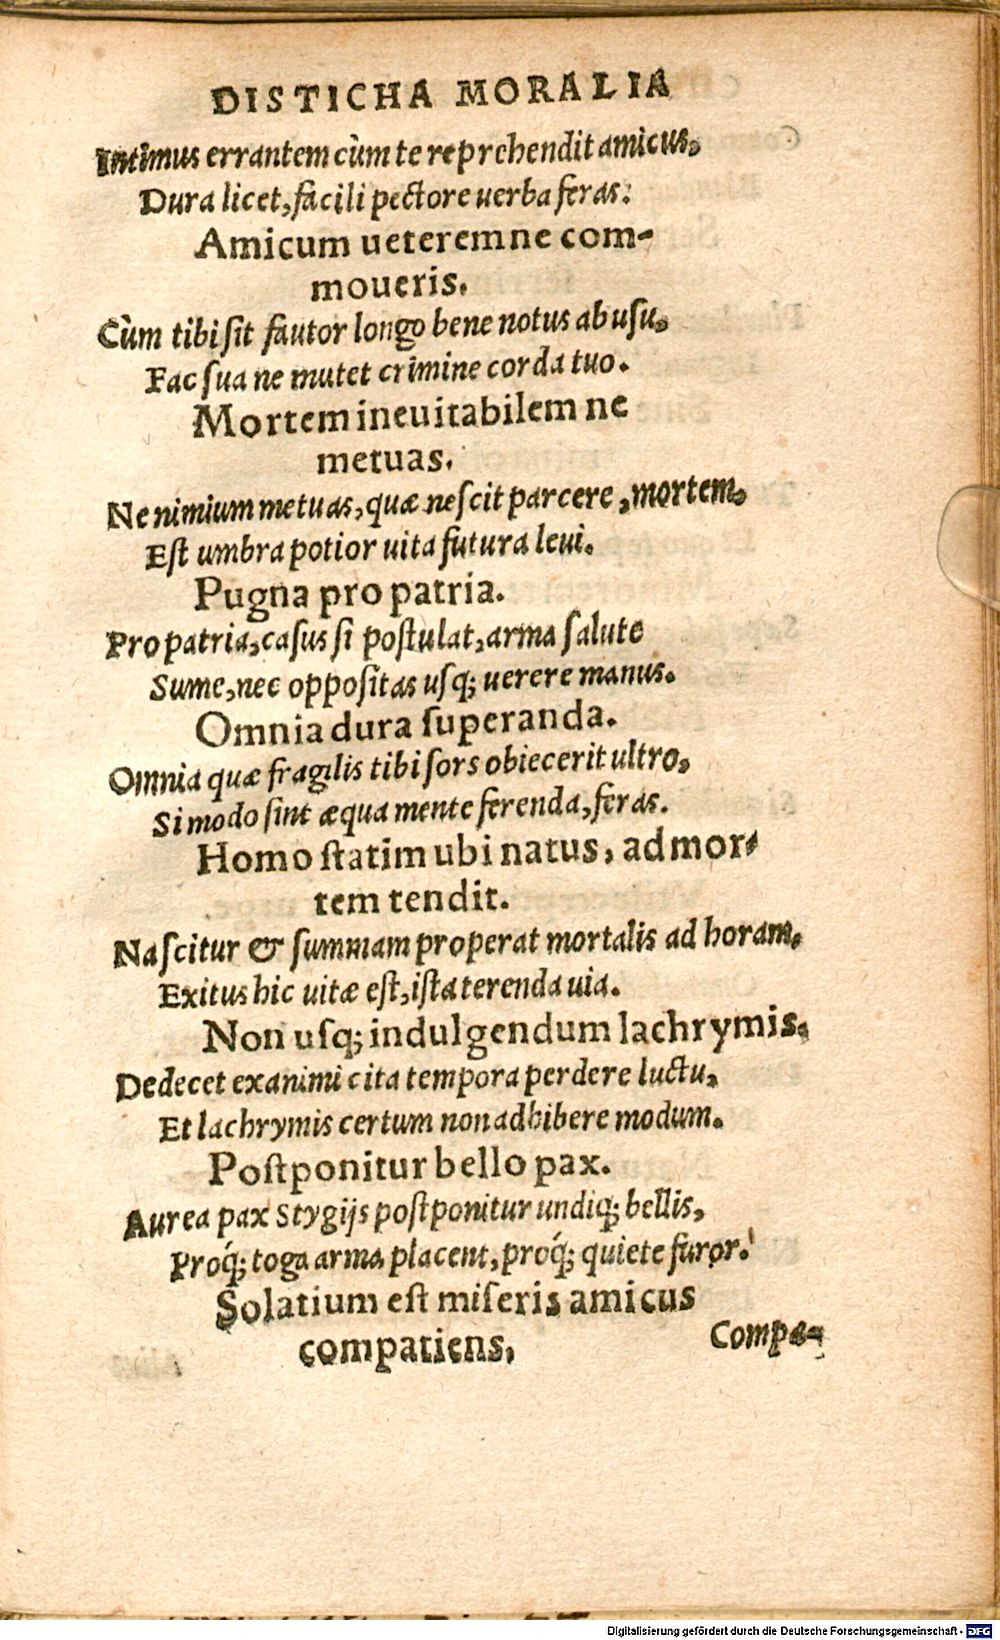 DISTICHA MORALIA
Intimus errantem cùm te reprehendit amicus,
Dura licet, facili pectore uerba feras:
Amicum ueterem ne com-
moueris.
Cùm tibi ſit fautor longo bene notus ab uſu,
Fac ſua ne mutet crimine corda tuo.
Mortem ineuitabilem ne
metuas.
Ne nimium metuas, quæ neſcit parcere, mortem,
Eſt umbra potior uita futura leui.
Pugna pro patria.
Pro patria, caſus ſi poſtulat, arma ſalute
Sume, nec oppoſitas uſq; uerere manus.
Omnia dura ſuperanda.
Omnia quæ fragilis tibi ſors obiecerit ultro,
Si modo ſint æqua mente ferenda, feras.
Homo ſtatim ubi natus, ad mor-
tem tendit.
Naſcitur & ſummam properat mortalis ad horam,
Exitus hic uitæ eſt, iſta terenda uia.
Non uſq; indulgendum lachrymis.
Dedecet exanimi cita tempora perdere luctu,
Et lachrymis certum non adhibere modum.
Poſtponitur bello pax.
Aurea pax Stygijs poſtponitur undiq; bellis,
Proq́; toga arma placent, proq́; quiete furor.
Solatium eſt miſeris amicus
compatiens,
Compa-
Digitalisierung gefördert durch die Deutsche Forschungsgemeinschaft - DFG